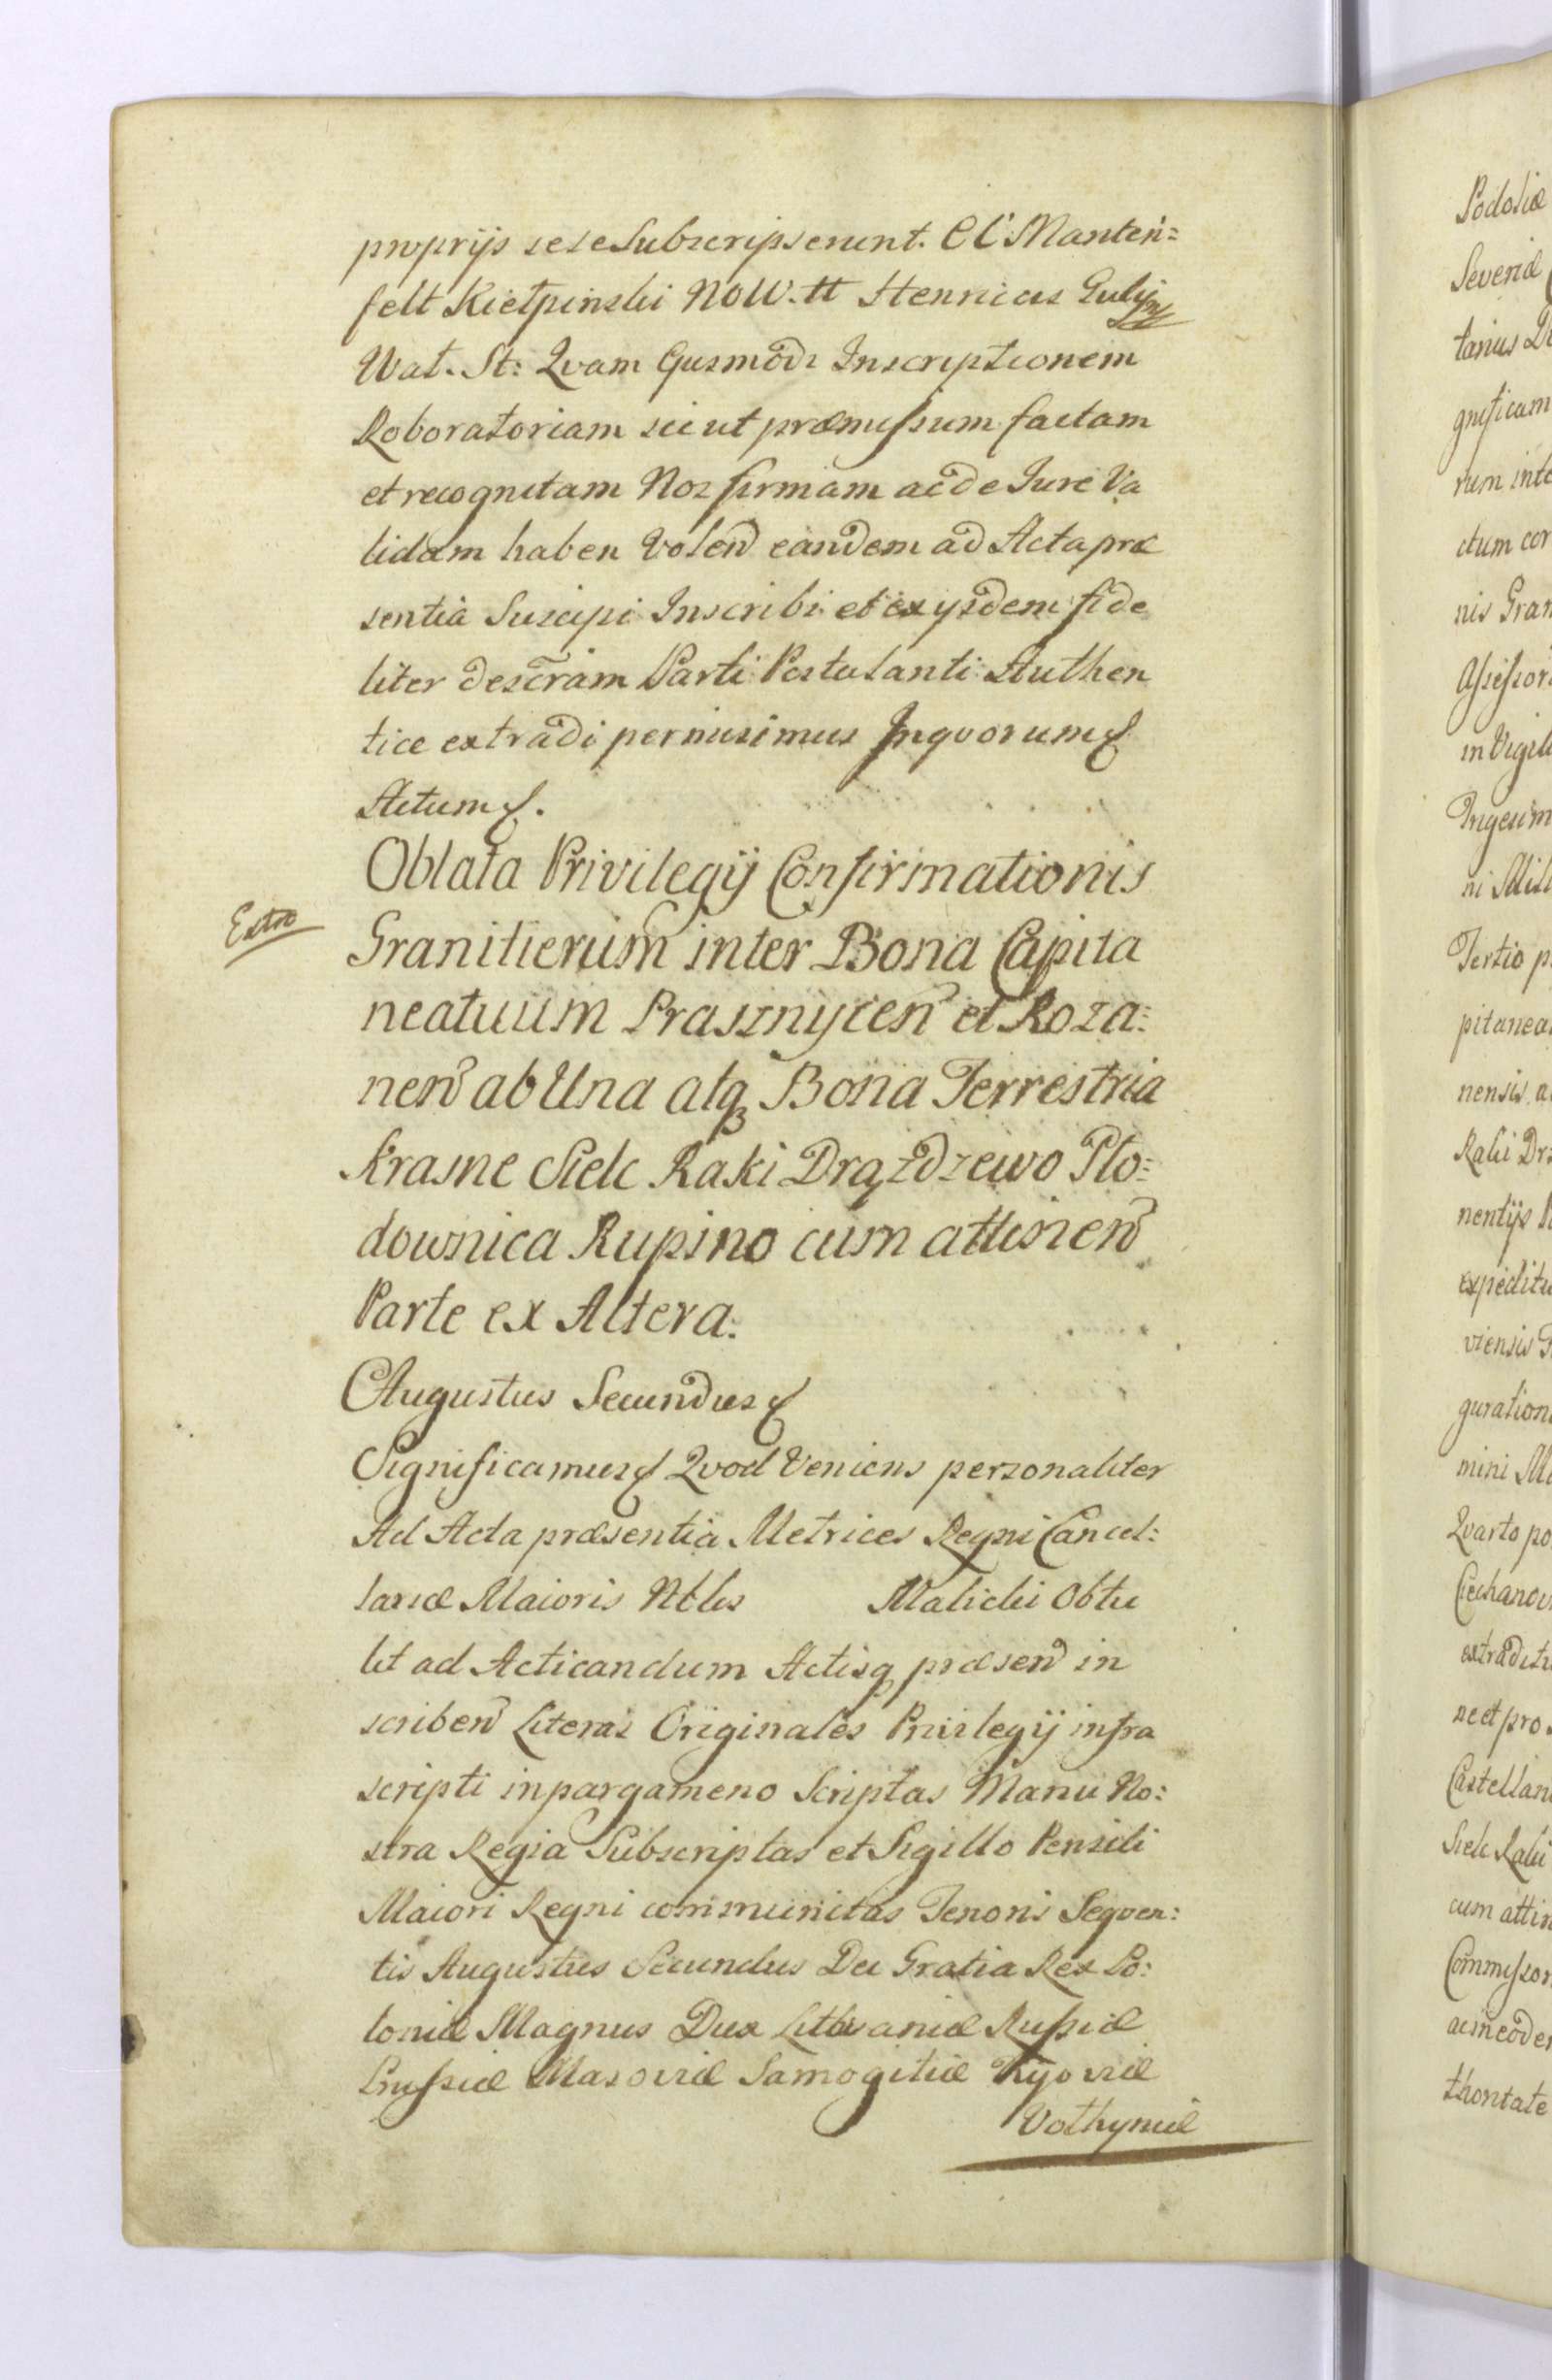 proprijs sese Subscripserunt. CC Manten=
felt Kiełpinski NOW. tt Henricus
Wat. St: Qvam Ejusmodi Inscriptionem
Roboratoriam sicut præmissum factam
et recognitam Nos firmam ac de Jure Va
lidam haben volen eandem ad Acta præ
sentia Suscipi Inscribi et ex ysdem fide
liter descram Parti Postulanti Authen
tice extradi permisimus Inqvorum
Actum
Oblata Privilegij Confirmationis
Extro
Granitierum inter Bona Capita
neatuum Prasznycen et Roza:
nen ab Una atq Bona Terrestria
Krasne Sielc Raki Drążdzewo Pło=
downica Rupino cum attinen
Parte ex Altera.
Augustus Secundus
Significamus Qvod Veniens personaliter
Ad Acta præsentia Metrices Regni Cancel:
lariæ Maioris Nbles Malicki Obtu
lit ad Acticandum Actisq præsen in
scriben Literas Originales Privilegij infra
scripti in pargameno Scriptas Manu No:
stra Regia Subscriptas et Sigillo Pensili
Maiori Regni communitas Tenoris Seqven:
tis Augustus Secundus Dei Gratia Rex Po:
loniæ Magnus Dux Lithvaniæ Russiæ
Prussiæ Masoviæ Samogitiæ Kijoviæ
Volhyniæ
Podoliæ
Severiæ
tarius
gnificam
rum inte
ctum cor
nis Gran
Assessor
in Vigili
Trigesim
ni Mill
Tertio p
pitanea
nensis a
Raki Dr
nentijs
expeditu
viensis
guration
mini
Qvarto po
Ciechanov
extraditu
ne et pro
Castellan
Sielc Raki
cum attin
Commissor
ac in eode
thoritate